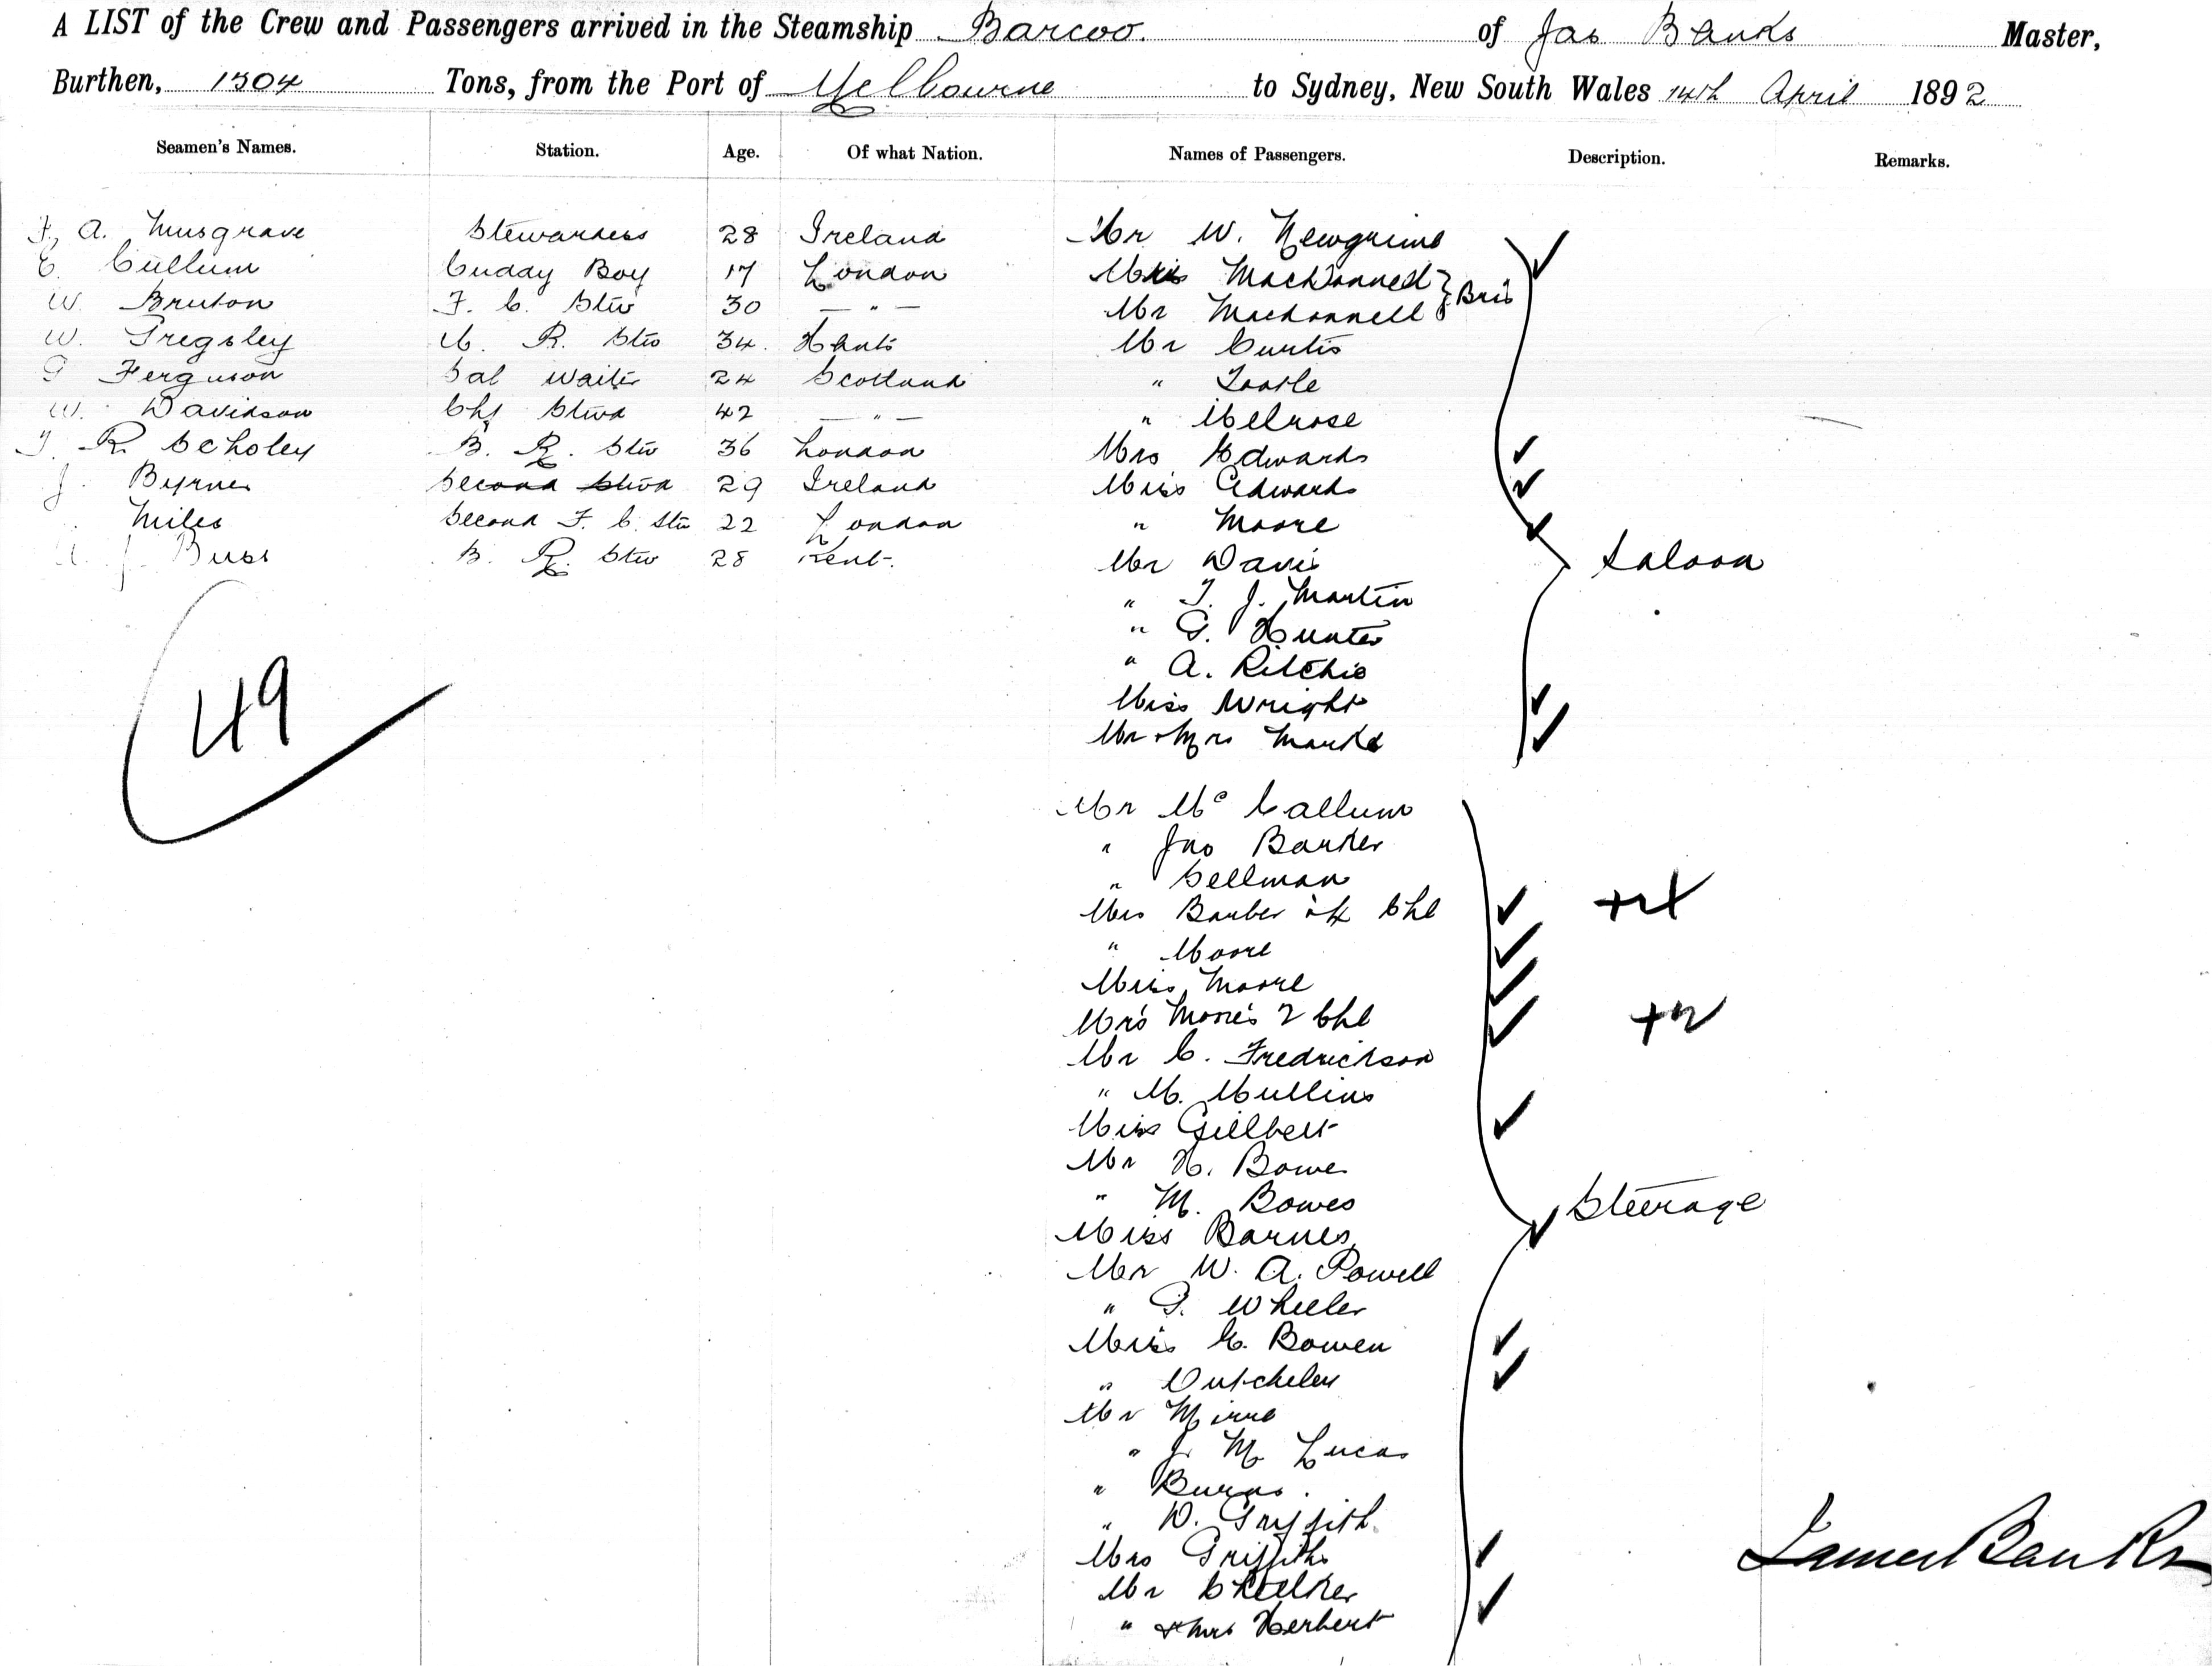 A LIST of the Crew and Passengers arrived in the Steamship Barcoo. of Jas Banks Master,
Burthen, 1504 Tons, from the Port of Melbourne to Sydney, New South Wales 14th April 1892
Seamen's Names. Station. Age. Of what Nation. Names of Passengers. Description. Remarks.
F. A. Musgrave Stewardess 28 Ireland Mr W. Newgrime
E. Cullum Cuddy Boy 17 London MacDonnell } Bris
W. Bruton F. C. Stw 30 — " — Mr Macdonnell
W. Gregsley M. R. Stw 34. Hants Mr Curtis
G Ferguson Sal Waiter 24 Scotland " Tootle
W. Davidson Chf Stwd 42 — " — " Melrose
T. R. Scholey B. R. Stw 36 London Mrs Edwards
J. Byrnes Second Stwd 29 Ireland Miss Edwards
Miles Second F. C. Stw 22 London " Moore
J. Buss B. R. Stw 28 Kent. Mr Davis
Saloon
" T. J. Martin
" G. Hunter
" A. Ritchie
Miss Wright
Mr & Mrs Marks
49
Mr Mc Callum
" Jno Barker
" Sellman
Mrs Barber & Chl
" Moore
Miss Moore
Mrs Moore's 2 Chl +2
Mr C. Fredrickson
" M. Mullins
Miss Gillbert
Mr H. Bowe
" M. Bowes
Steerage
Miss Barnes
Mr W. A. Powell
" G. Wheeler
Miss E. Bowen
" Dutcheley
Mr Mirre
" J. M. Lucas
" Burns.
" D. Griffith.
Mrs Griffiths
Mr
" & Mrs Herbert
James Banks